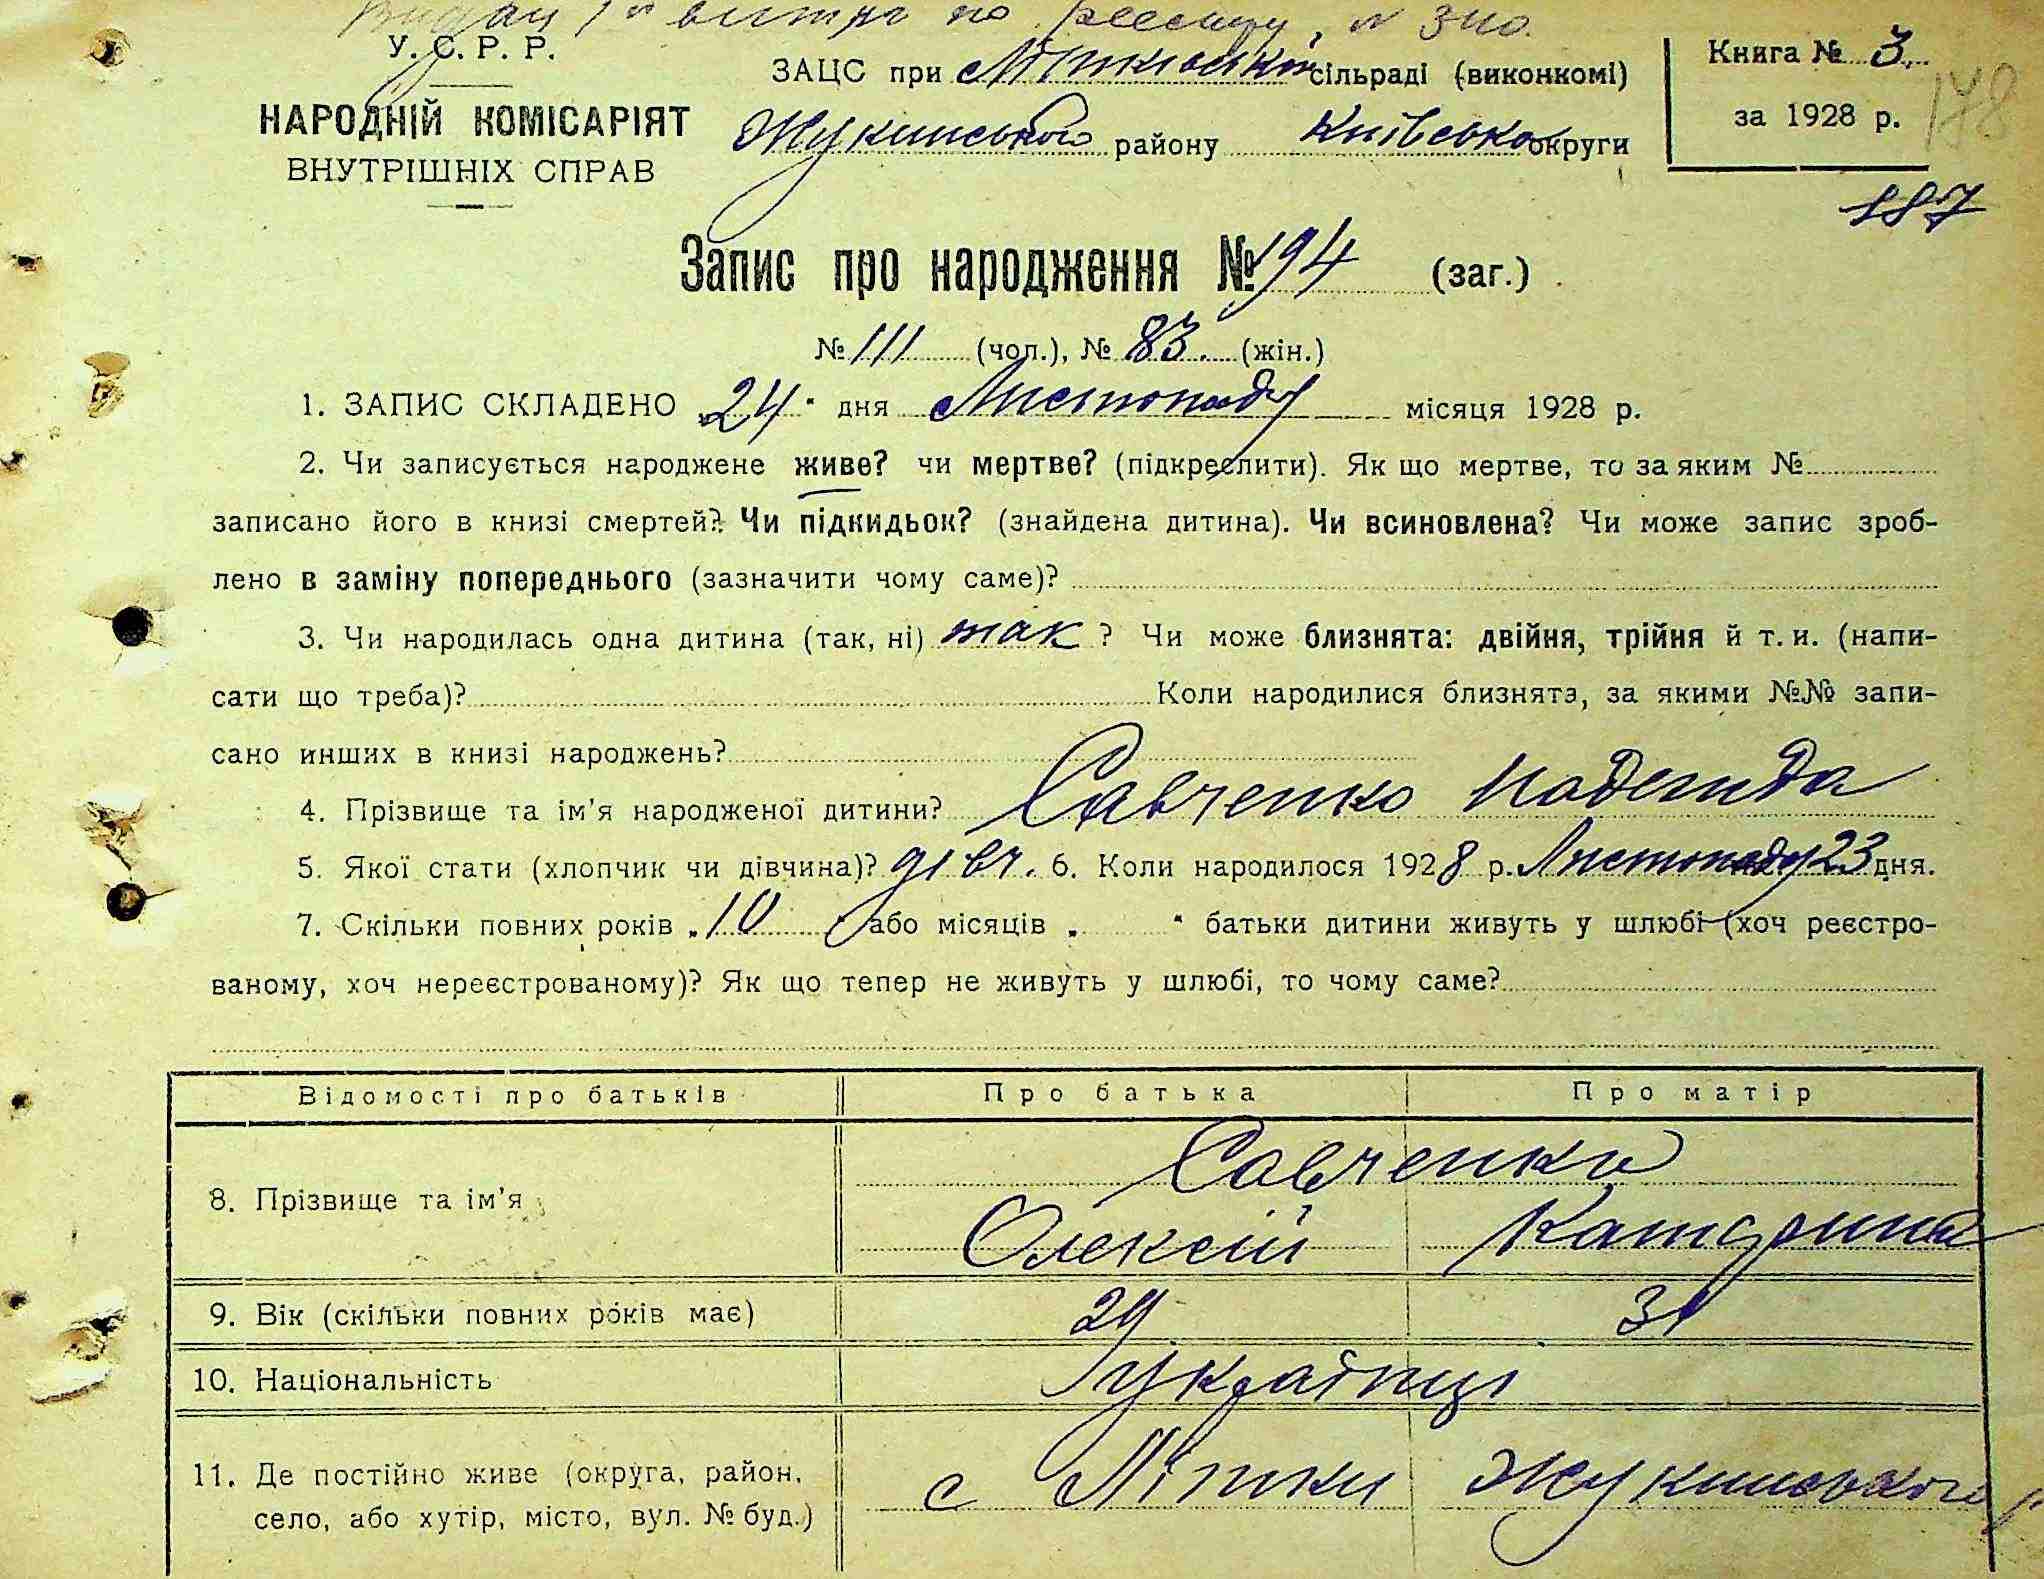 по реєстру, № 340.
У. С. Р. Р.
НАРОДНІЙ КОМІСАРІЯТ
ВНУТРІШНІХ СПРАВ
ЗАЦС при Літківській сільраді (виконкомі)
Жукинського району Київської округи
Книга № 3
за 1928 р.
178
187
Запис про народження № 194 (заг.)
№ 111 (чол.), № 83. (жін.)
1. ЗАПИС СКЛАДЕНО „24" дня Листопаду місяця 1928 р.
2. Чи записується народжене живе? чи мертве? (підкреслити). Як що мертве, то за яким №
записано його в книзі смертей? Чи підкидьок? (знайдена дитина). Чи всиновлена? Чи може запис зроб-
лено в заміну попереднього (зазначити чому саме)?
3. Чи народилась одна дитина (так, ні) так ? Чи може близнята: двійня, трійня й т. и. (напи-
сати що треба)? Коли народилися близнята, за якими №№ запи-
сано инших в книзі народжень?
4. Прізвище та ім'я народженої дитини? Савченко Надежда
5. Якої стати (хлопчик чи дівчина)? дівч. 6. Коли народилося 1928 р. Листопаду 23 дня.
7. Скільки повних років „10" або місяців „ " батьки дитини живуть у шлюбі (хоч реєстро-
ваному, хоч нереєстрованому)? Як що тепер не живуть у шлюбі, то чому саме?
Відомості про батьків Про батька Про матір
8. Прізвище та ім'я Савченко
Олексій Катерина
9. Вік (скільки повних років має) 29 31
10. Національність Українці
11. Де постійно живе (округа, район,
село, або хутір, місто, вул. № буд.) с Літки Жукинського р